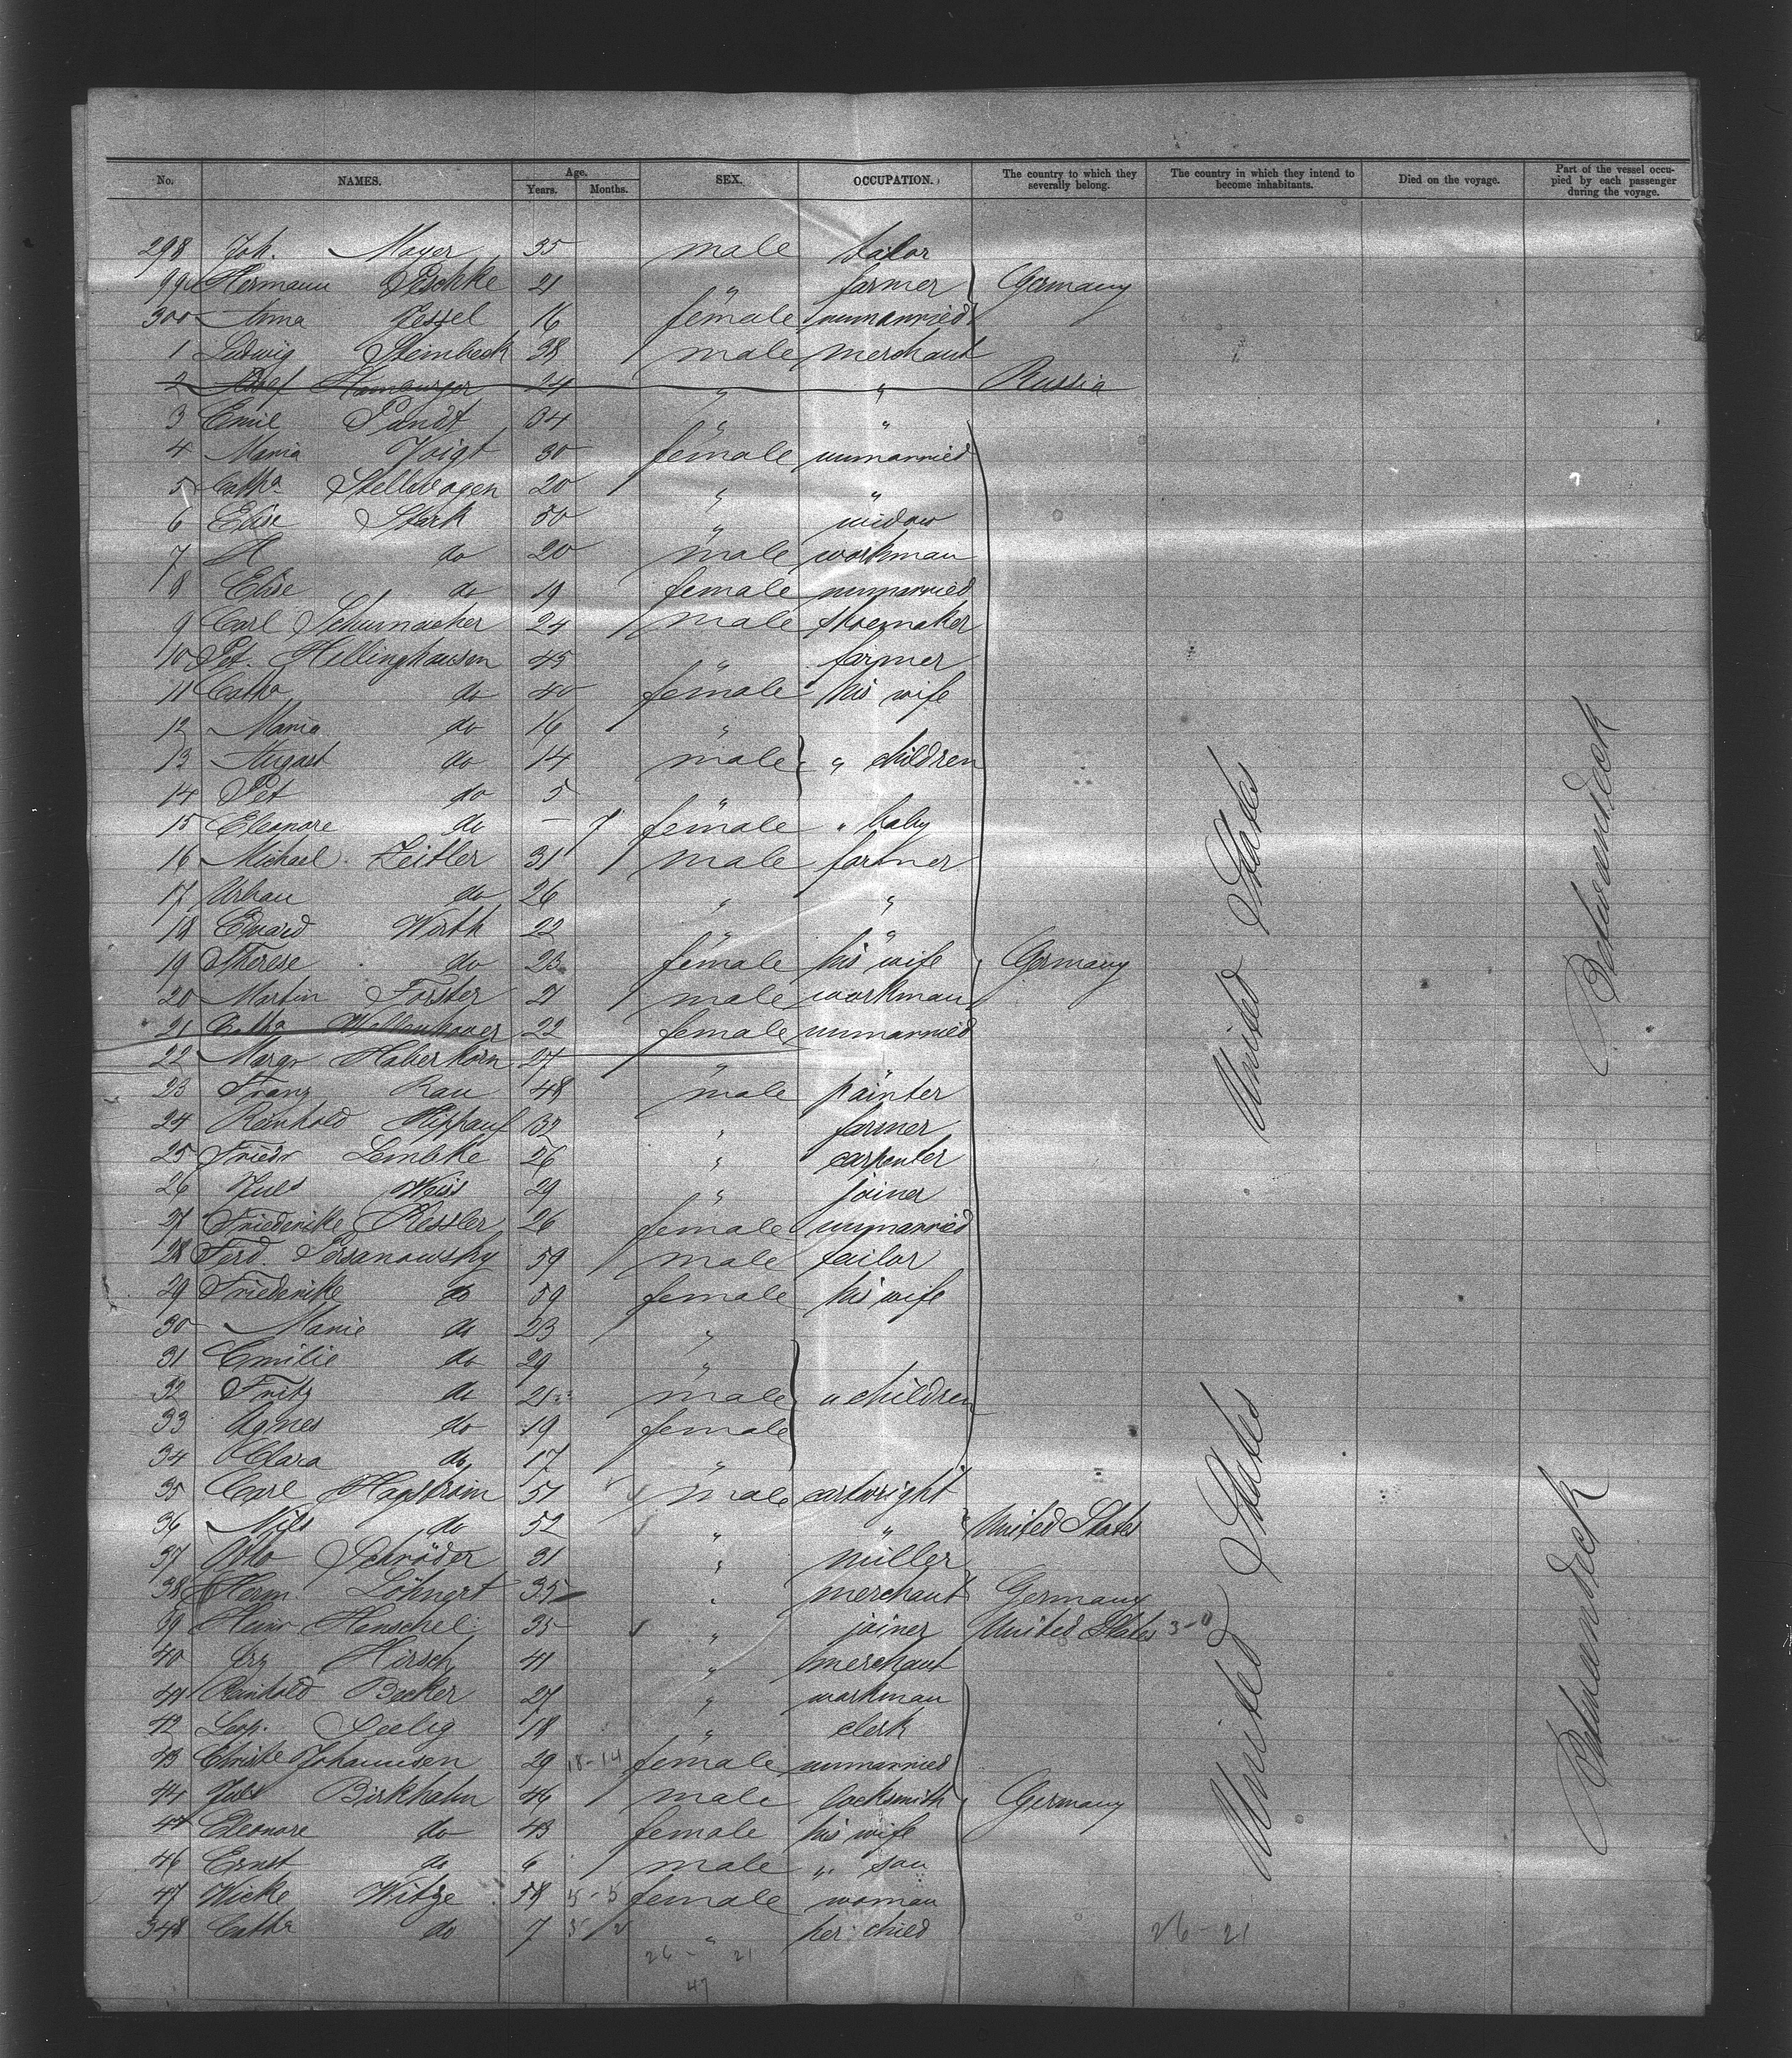 No. NAMES. Age. Years. Months. SEX. OCCUPATION. The country to which they severally belong. The country in which they intend to become inhabitants. Died on the voyage. Part of the vessel occupied by each passenger during the voyage.
298 Joh. Mayer 35 male tailor
99 Hermann Peschke 21 " farmer Germany
300 Anna Jessel 16 female unmarried
1 Ludwig Steinbeck 38 male merchant
2 Josef Hamburger 24 " " Russia
3 Emil Pandt 34 " "
4 Maria Voigt 30 female unmarried
5 Catha Stellwagen 20 " "
6 Elise Stark 50 " widow
7 A do 20 male workman
8 Elise do 19 female unmarried
9 Carl Schumacher 24 male shoemaker
10 Pet. Hellinghausen 45 " farmer
11 Catha do 40 female his wife
12 Maria do 16 "
13 August do 14 male " children
14 Pet do 5 "
15 Eleonore do - 7 female " baby
16 Michael Zeitler 31 male farmer
17 Urban do 26 " "
18 Eduard Wirth 22 " "
19 Therese do 23 female his wife Germany
20 Martin Forster 21 male workman
21 Catha 22 female unmarried
22 Margr Haberkorn 27 "
23 Franz Rau 48 male painter
24 Reinhold Hippauf 32 " farmer
25 Friedr Lembke 26 " carpenter
26 Juls Weiss 29 " joiner
27 Friederike Ressler 26 female unmarried
28 Ferd. Persanowsky 59 male tailor
29 Friederike do 59 female his wife
30 Marie do 23 "
31 Emilie do 29 "
32 Fritz do 21 male " children
33 Agnes do 19 female
34 Clara do 17 "
35 Carl Hagström 51 male cartwright
36 Nils do 52 " " United States
37 Otto Schröder 31 " miller
38 Herm. Löhnert 35 " merchant Germany
39 Heinr Henschel 35 " joiner United States 3-0
40 Hirsch 41 " merchant
41 Reinhold Becker 27 " workman
42 Leop. Seelig 18 " clerk
43 Christe Johannsen 29 18-14 female unmarried
44 Juls Birkhahn 46 male locksmith Germany
45 Eleonore do 43 female his wife
46 Ernst do 6 male " son
47 Wicke Witze 58 5-5 female woman
348 Catha do 7 " her child 26-21
26-21
47
United States
Betweendeck
United States
Betweendeck